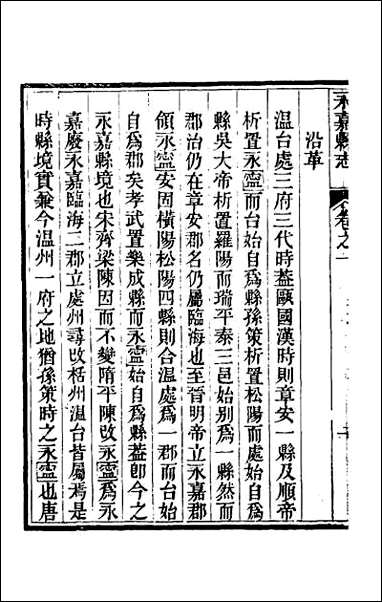 永嘉縣志
卷之一
沿革
温台處三府三代時葢甌國漢時則章安一縣及順帝
析置永寍而台始自爲縣孫策析置松陽而處始自爲
縣吳大帝析置羅陽而瑞平泰三邑始别爲一縣然而
郡治仍在章安郡名仍屬臨海也至晉明帝立永嘉郡
領永寍安固橫陽松陽四縣則合温處爲一郡而台始
自爲郡矣孝武置樂成縣而永寍始自爲縣葢卽今之
永嘉縣境也宋齊梁陳因而不變隋平陳改永寍爲永
嘉廢永嘉臨海二郡立處州尋改栝州温台皆屬焉是
時縣境實兼今温州一府之地猶孫策時之永寍也唐